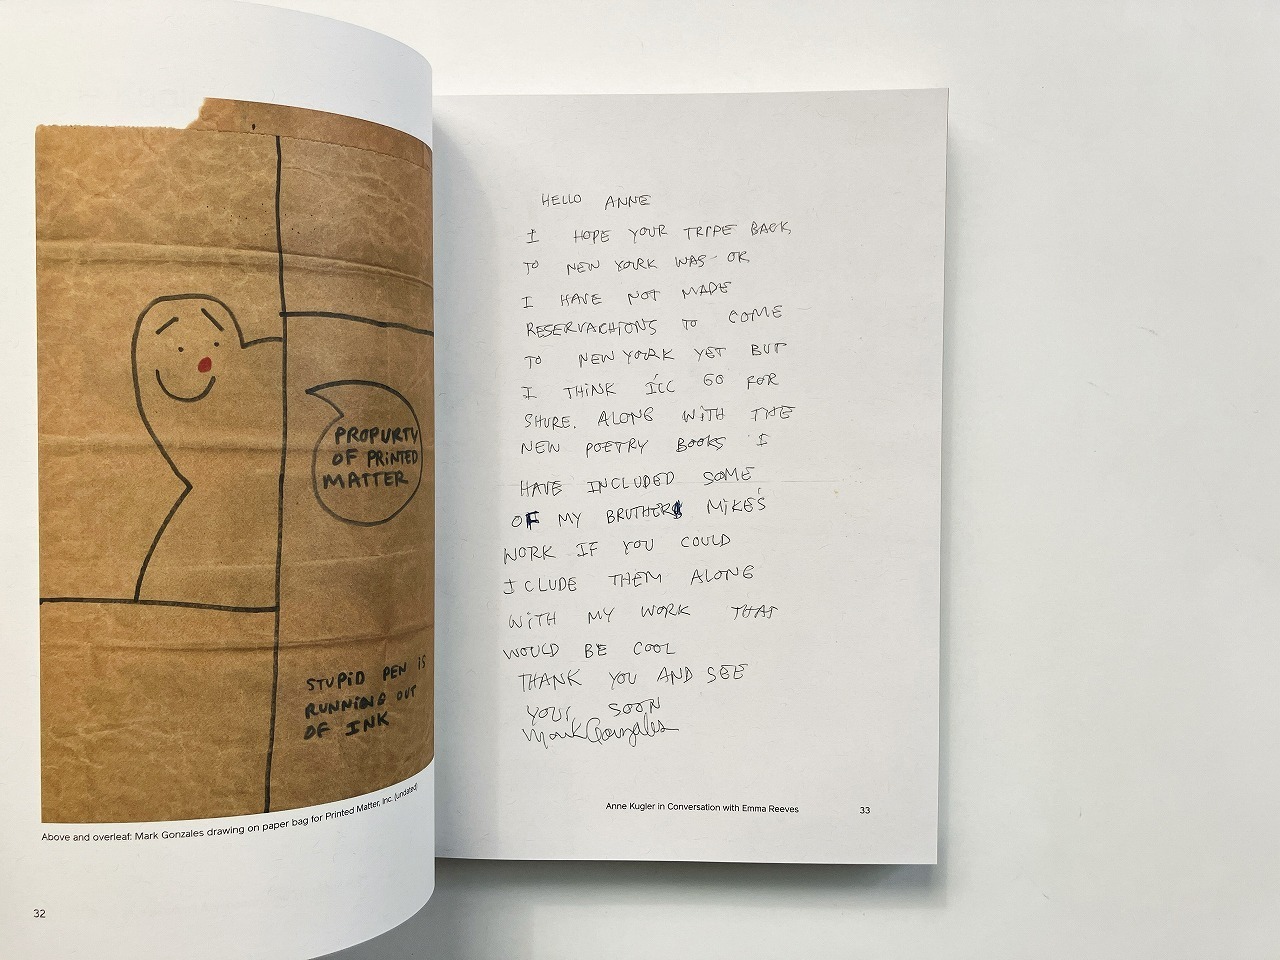 PROPURTY
OF PRINTED
MATTER
STUPID PEN IS
RUNNING OUT
OF INK
Above and overleaf: Mark Gonzales drawing on paper bag for Printed Matter, Inc. (undated)
32
HELLO ANNE
I HOPE YOUR TRIPE BACK
TO NEW YOURK WAS OK
I HAVE NOT MADE
RESERVACHIONS TO COME
TO NEW YOURK YET BUT
I THINK I'LL GO FOR
SHURE. ALONG WITH THE
NEW POETRY BOOKS I
HAVE INCLUDED SOME
OF MY BRUTHERS MIKE'S
WORK IF YOU COULD
ICLUDE THEM ALONG
WITH MY WORK THAT
WOULD BE COOL
THANK YOU AND SEE
YOU, SOON
Mark Gonzales
Anne Kugler in Conversation with Emma Reeves
33